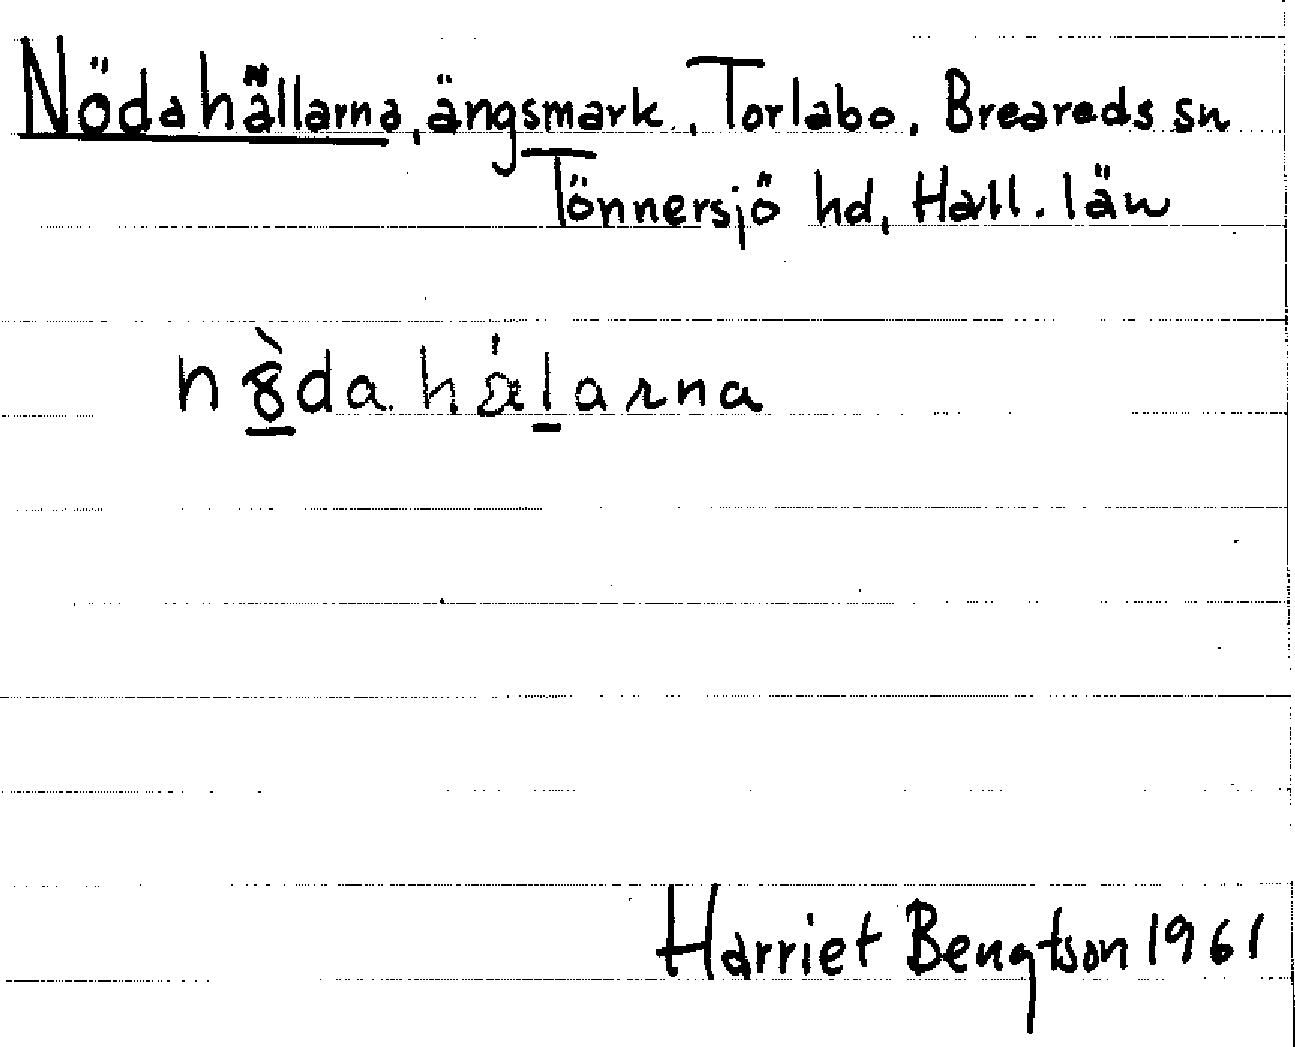 Nödahällarna, ängsmark, Torlabo, Breareds sn
Tönnersjö hd, Hall. län
nö̀dahálarna
Harriet Bengtson 1961